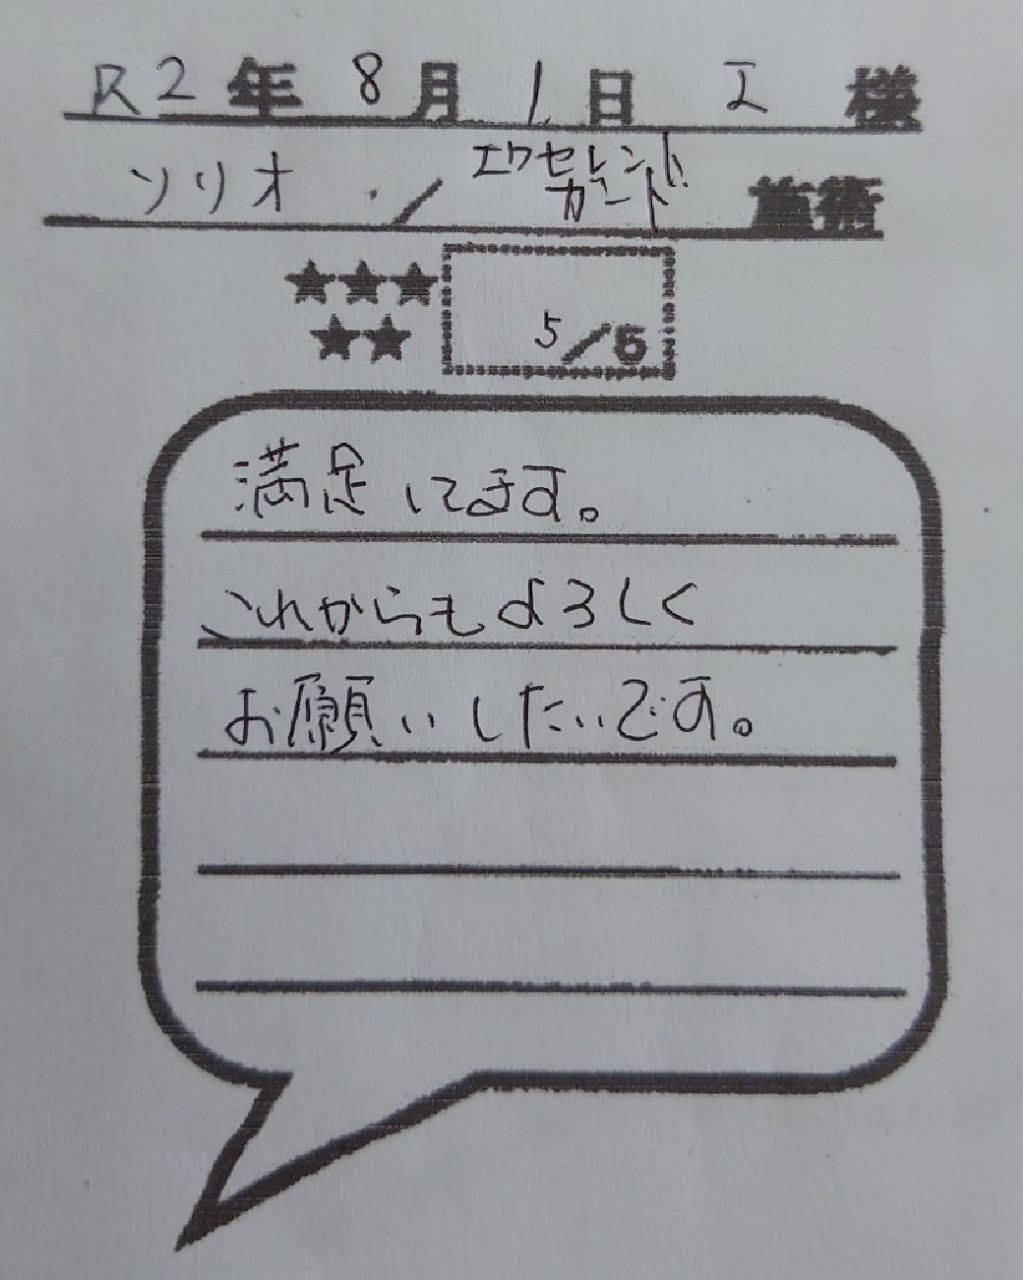 R2年 8月 1日 I 様
ソリオ ・/ エクセレント ガード 施術
★★★
★★ 5/5
満足してます。
これからもよろしく
お願いしたいです。